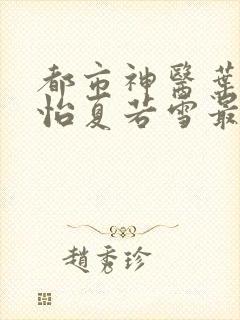 都市神醫葉
怡夏若雪最
趙秀珍